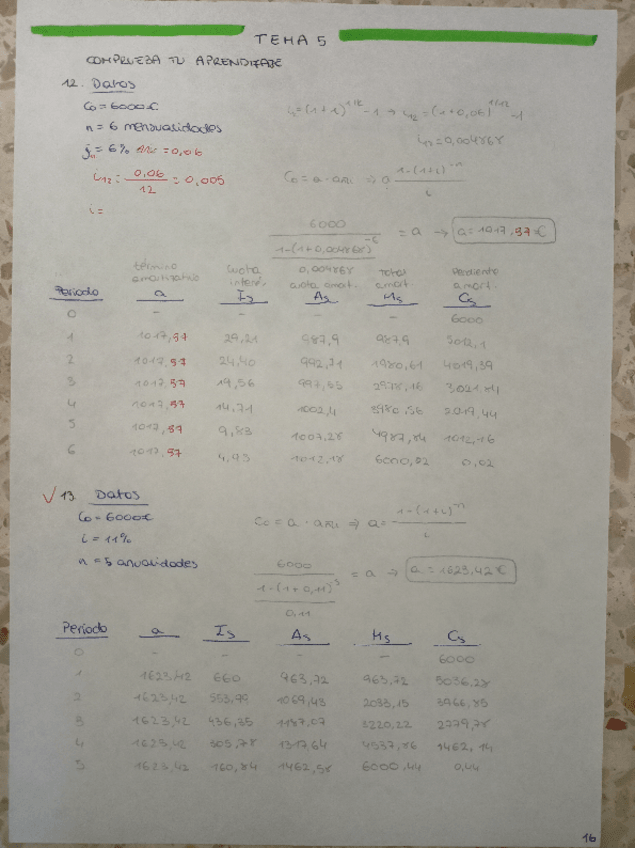 TEMA 5
COMPRUEBA TU APRENDIZAJE
12. Datos
C₀ = 6000€
n = 6 mensualidades
i₁₂ = (1+i)^1/12 - 1 → i₁₂ = (1+0,06)^1/12 - 1
i₁₂ = 0,004868
= 6% = 0,06
i₁₂ = 0,06/12 = 0,005
C₀ = a · ⇒ a 1-(1+i)^-n / i
i =
6000 / 1-(1+0,004868)^-6 / 0,004868 = a → a = 1017,97€
término amortizativo cuota interés cuota amort. total amort. pendiente amort.
Periodo a Is As Ms Cs
0 - - - - 6000
1 1017,97 29,21 987,9 987,9 5012,1
2 1017,97 24,40 992,71 1980,61 4019,39
3 1017,97 19,56 2978,16
4 1017,97 14,71 1002,4 2019,44
5 1017,97 9,83 1007,28 4987,84 1012,16
6 1017,97 4,93 1012,18 6000,02 0,02
✓ 13. Datos
C₀ = 6000€
i = 11%
n = 5 anualidades
C₀ = a · ⇒ a = 1-(1+i)^-n / i
6000 / 1-(1+0,11)^5 / 0,11 = a → a = 1623,42€
Periodo a Is As Ms Cs
0 - - - - 6000
1 1623,42 660 963,72 963,72 5036,28
2 1623,42 553,99 1069,43 2033,15 3966,85
3 1623,42 436,35 1187,07 3220,22 2779,78
4 1623,42 305,78 1317,64 4537,86 1462,14
5 1623,42 160,84 1462,58 6000,44 0,44
16